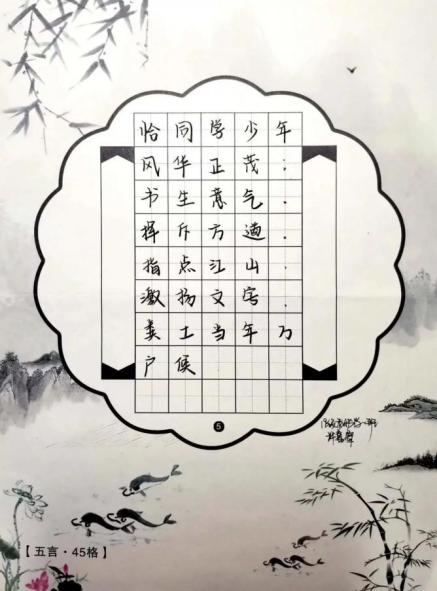 恰同学少年
风华正茂；
书生意气.
挥斥方遒.
指点江山.
激扬文字.
粪土当年万
户候
5
【五言·45格】